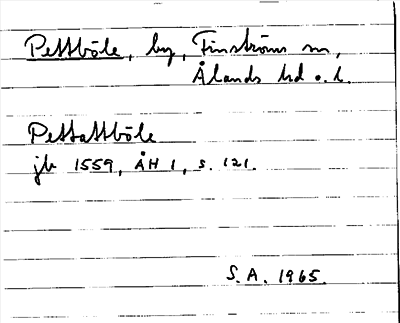 Pettböle, by, Finströms sn,
Ålands hd o. l.
Pettattböle
jb 1559, ÅH 1, s. 121.
S.A. 1965